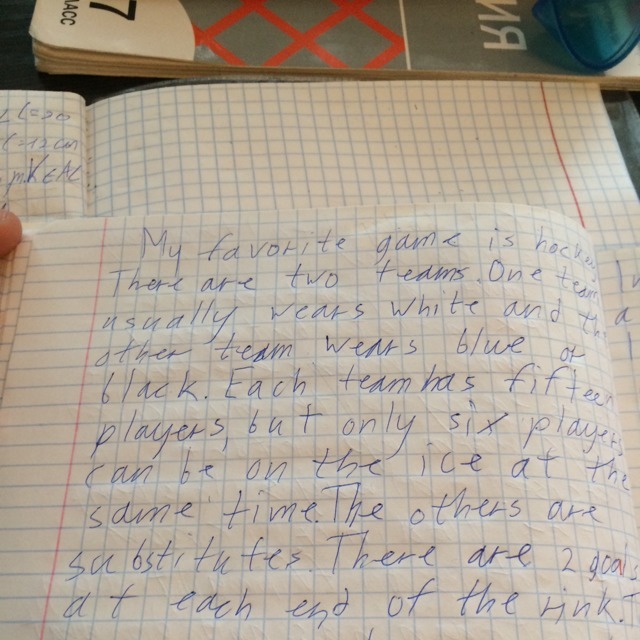 7
ЛАСС
ЯИ
My favorite game is hockey
There are two teams. One team
usually wears white and the
other team wears blue or
black. Each team has fifteen
players, but only six players
can be on the ice at the
same time. The others are
substitutes. There are 2 goals
at each end of the rink.